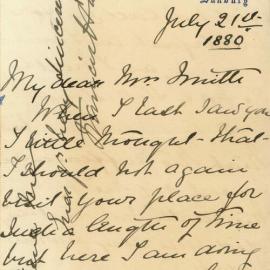 July 21st
1880
My dear Mrs Smith
When I last saw you
I little thought that
I should not again
visit your place for
such a length of time
but here I am doing